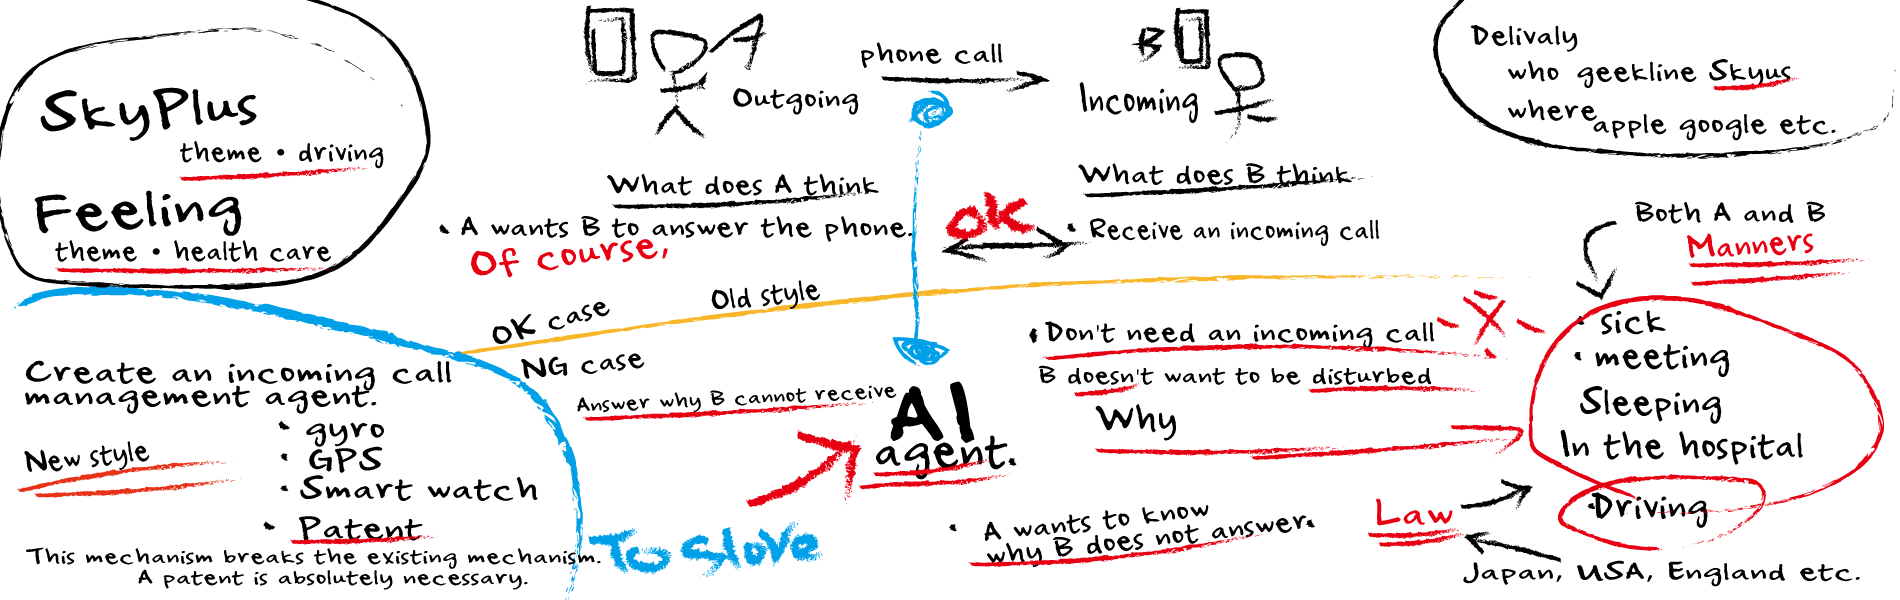 SkyPlus
theme • driving
Feeling
theme • health care
A
Outgoing
phone call
B
Incoming
Delivaly
who geekline Skyus
where apple google etc.
What does A think
• A wants B to answer the phone.
Of course,
OK
What does B think
• Receive an incoming call
Both A and B
Manners
OK case
Old style
NG case
Answer why B cannot receive
AI
agent.
• Don't need an incoming call
B doesn't want to be disturbed
Why
• sick
• meeting
Sleeping
In the hospital
• Driving
Law
Japan, USA, England etc.
• A wants to know
why B does not answer.
Create an incoming call
management agent.
• gyro
• GPS
• Smart watch
• Patent
New style
This mechanism breaks the existing mechanism.
A patent is absolutely necessary.
To Slove